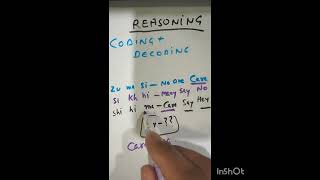 REASONING
CODING +
DECODING
Zu me Si - No One Care
Si Kh hi - Many Say No
shi hi me - Care Say Hey
- ??
Care
InShOt